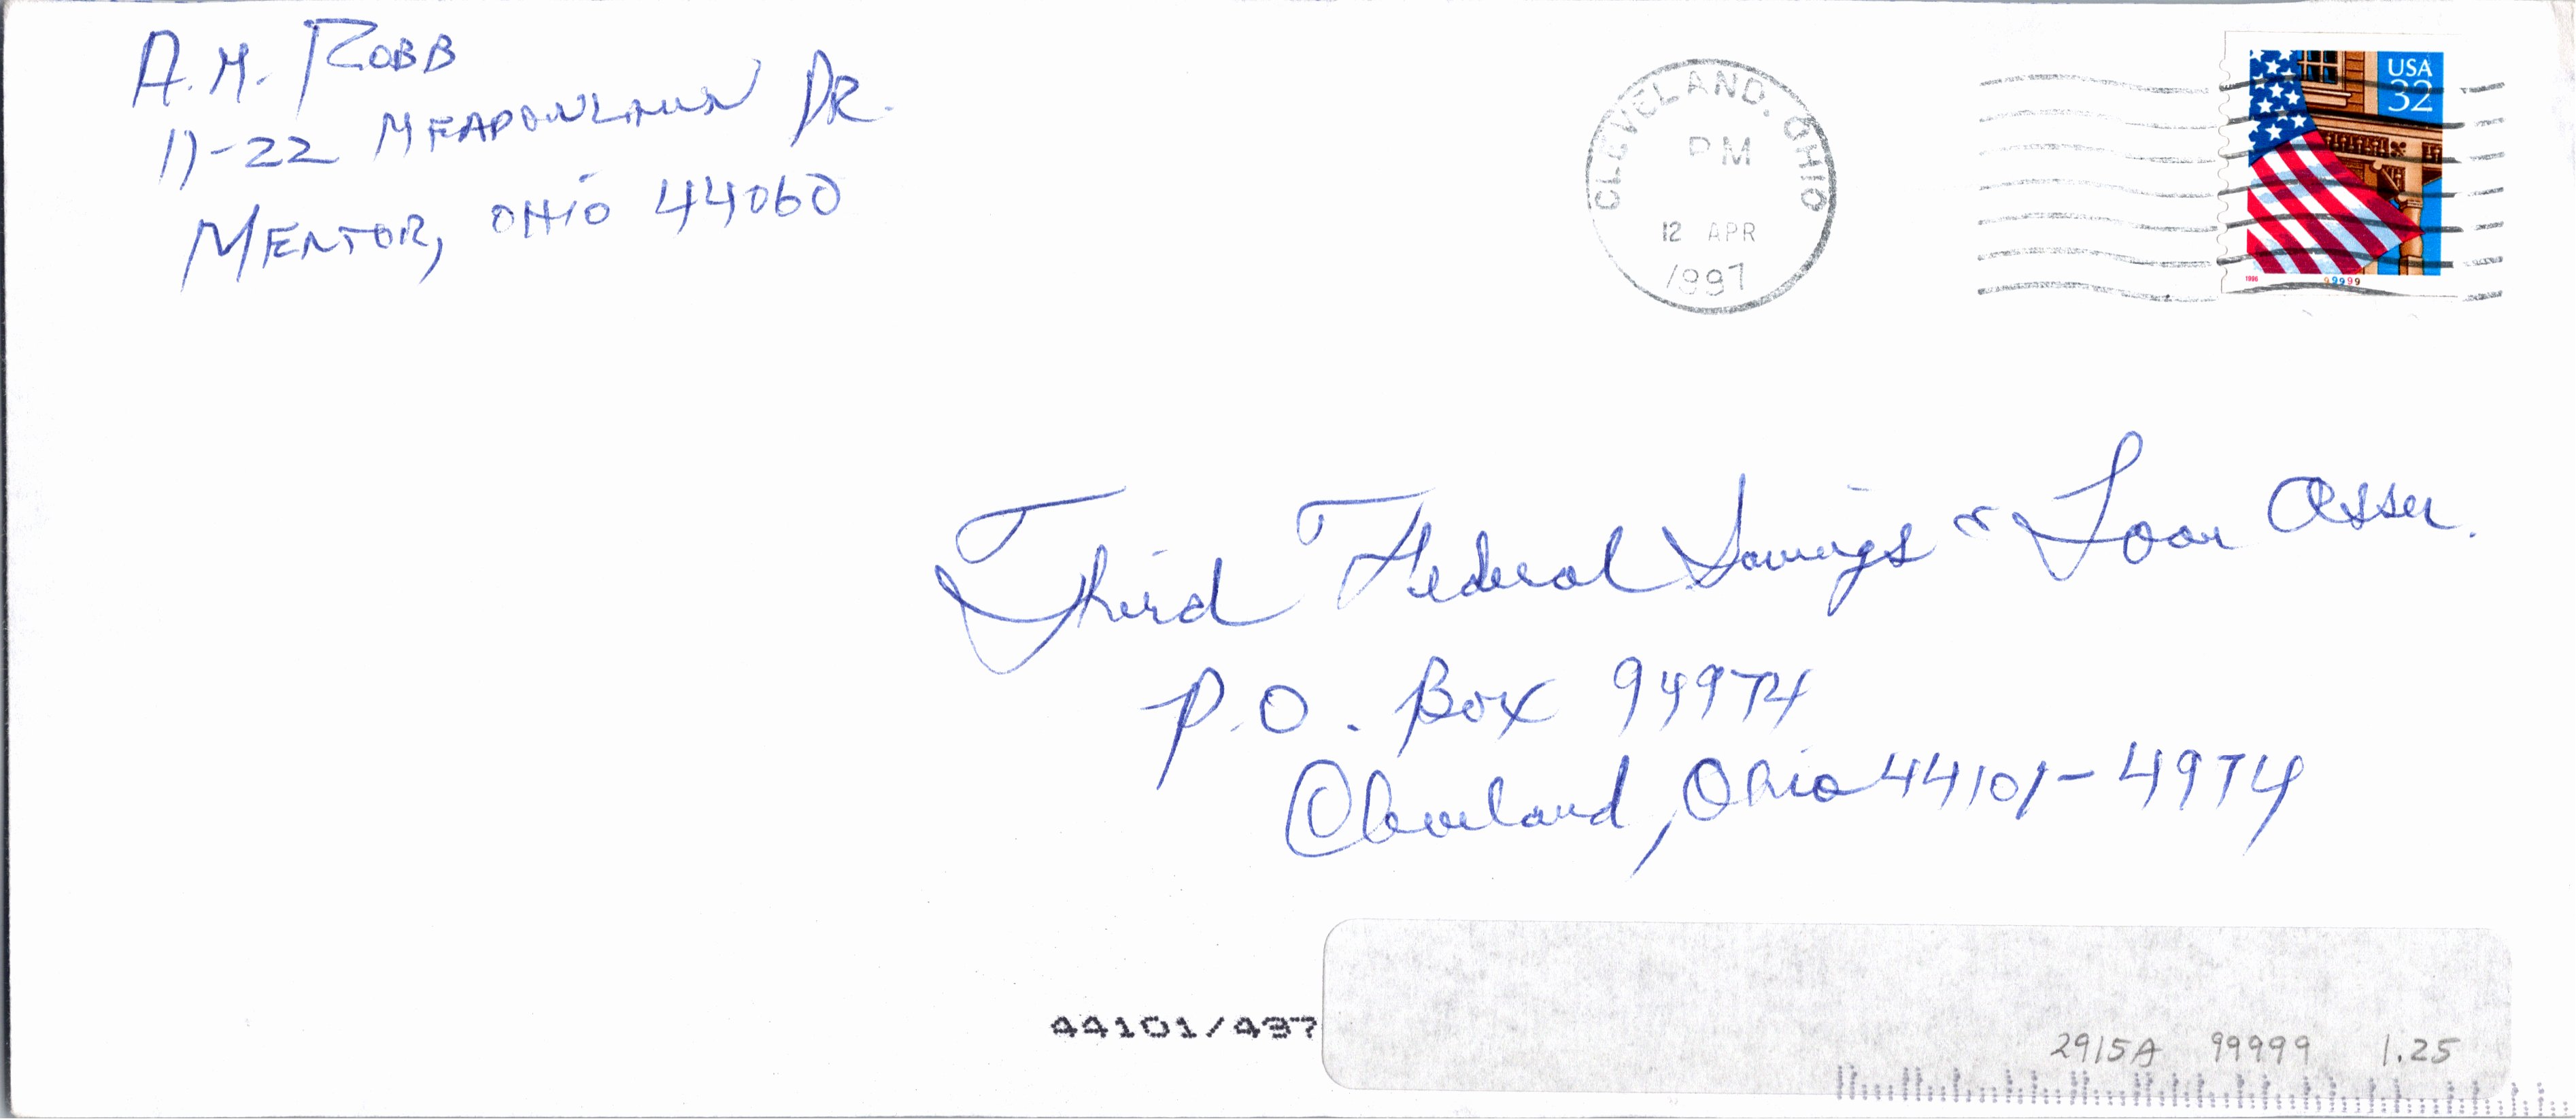 A.M. ROBB
11-22 MEADOWLAWN DR.
MENTOR, OHIO 44060
CLEVELAND, OHIO
PM
12 APR
1997
USA
32
1996
99999
Third Federal Savings & Loan Assn.
P.O. Box 94974
Cleveland, Ohio 44101-4974
44101/497
2915A 99999 1.25